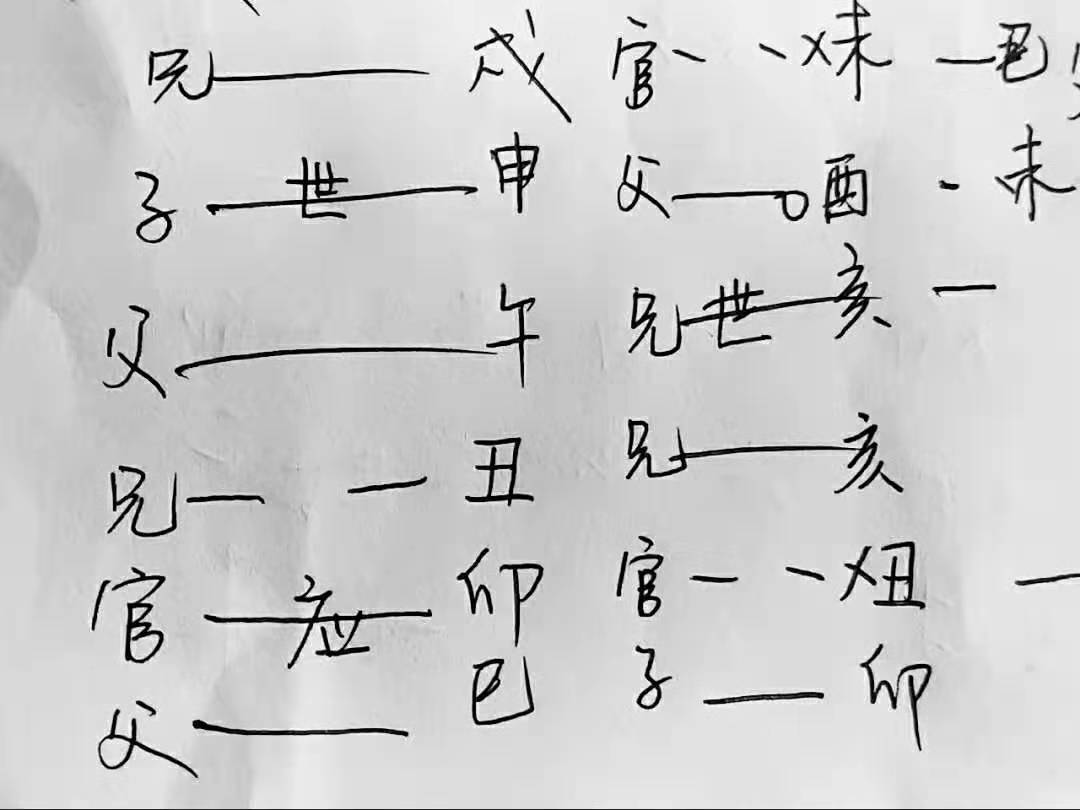 兄 戌 官 x未 巳
子 世 申 父 酉 未
父 午 兄 世 亥
兄 丑 兄 亥
官 应 卯 官 x丑
父 巳 子 卯